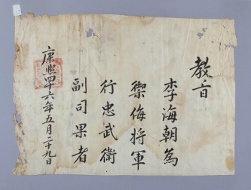 教旨
李海朝為
禦侮將軍
行忠武衛
副司果者
康熙四十六年五月二十九日